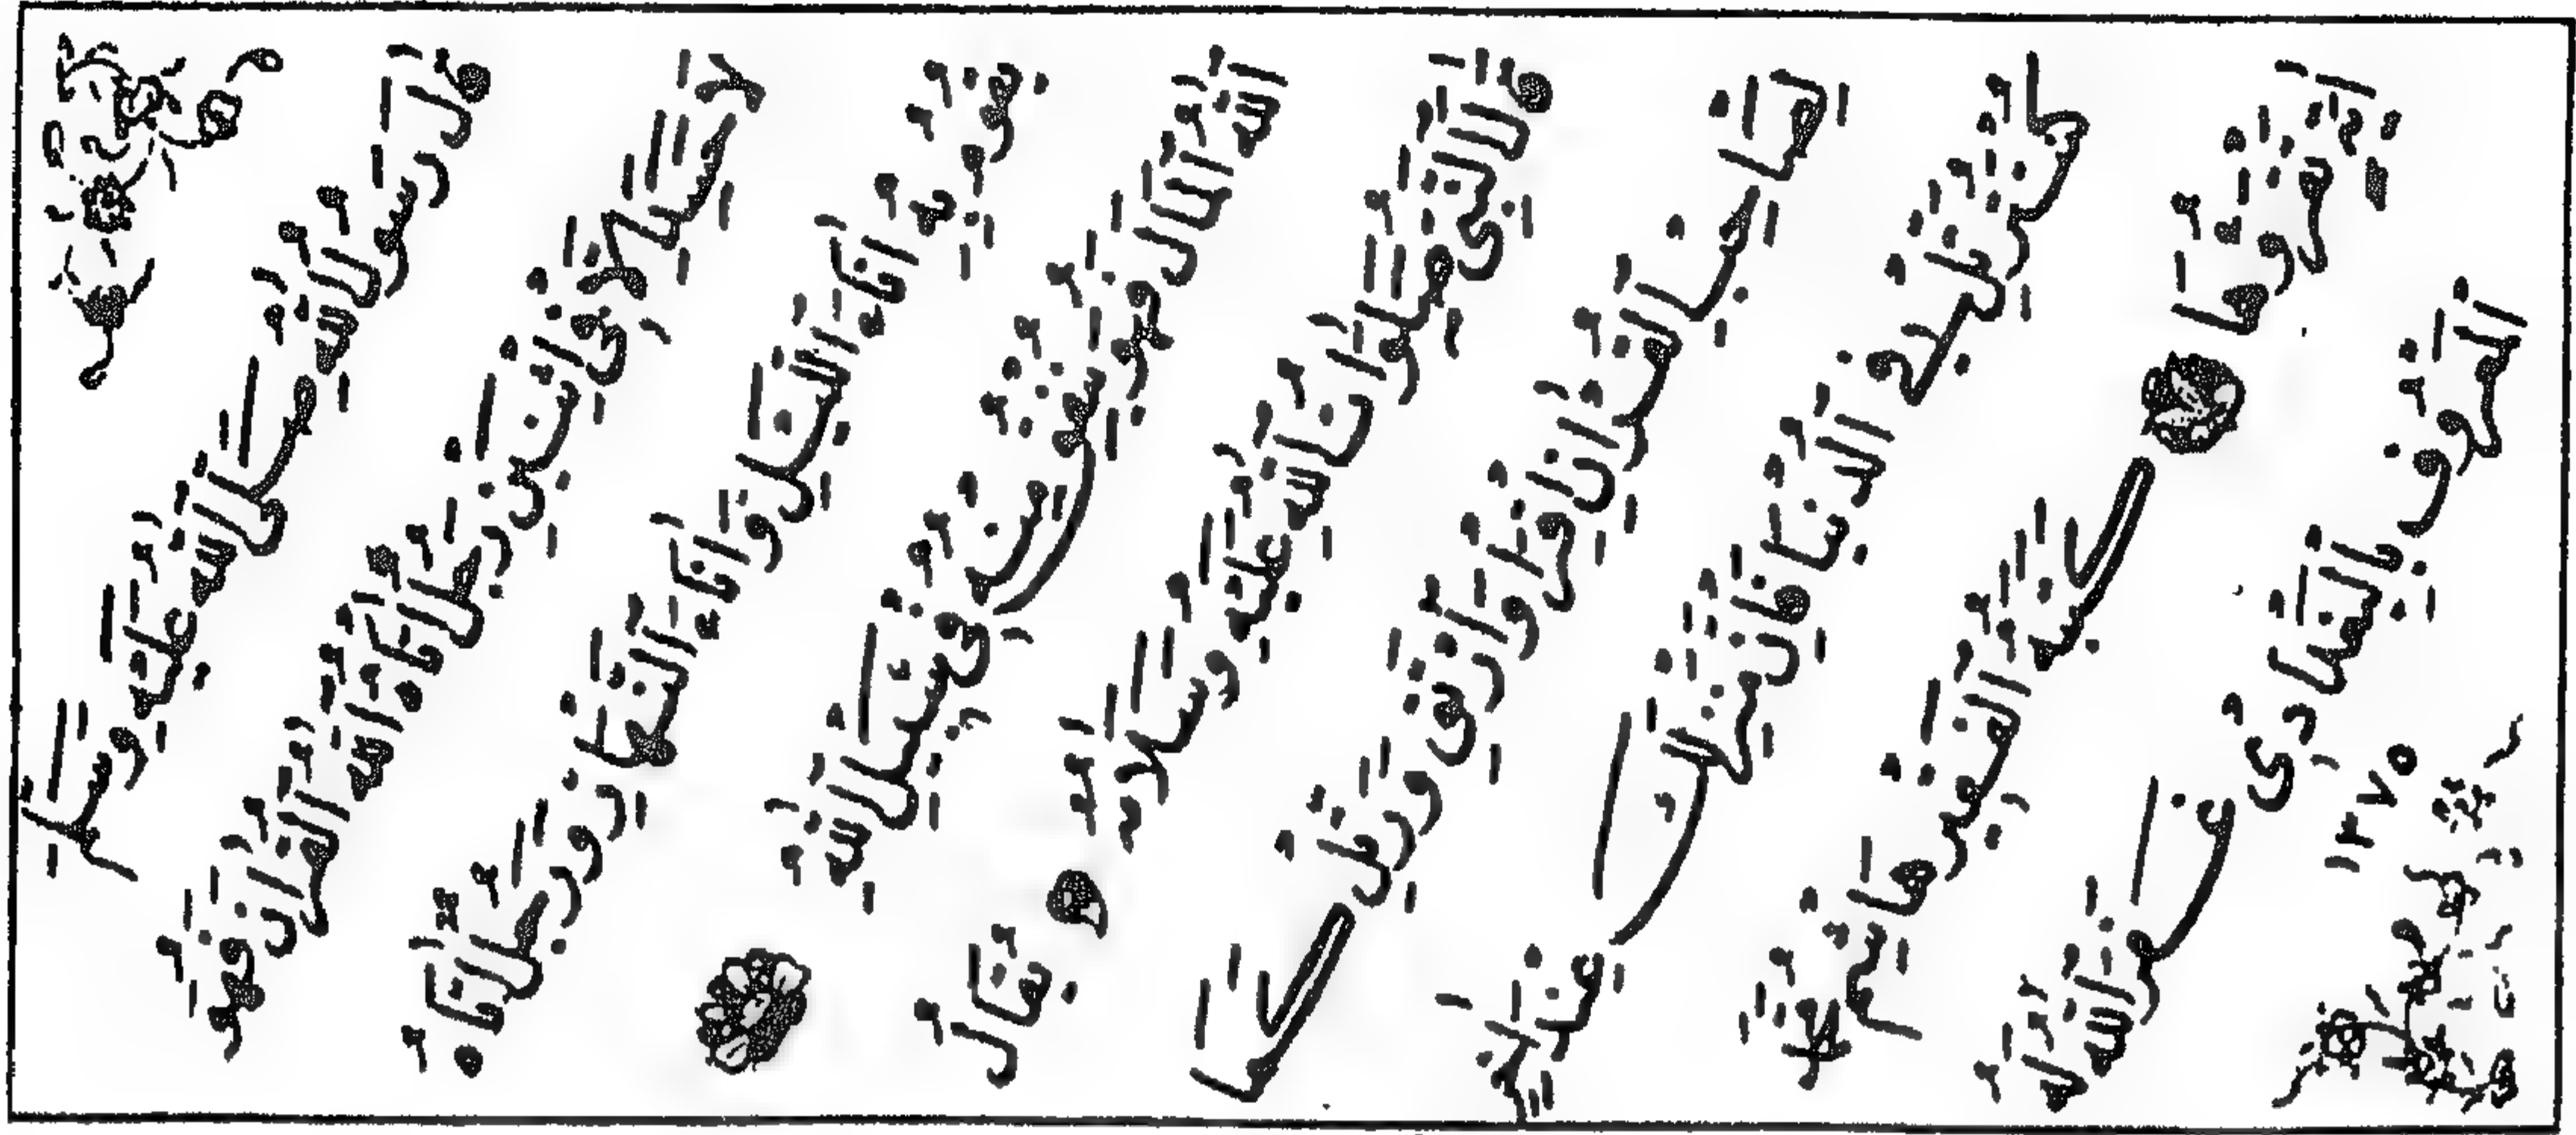 قال رسول الله صلى الله عليه وسلم
لا حسد الا في اثنتين رجل اتاه الله القرآن فهو
يقوم به اناء الليل واناء النهار ورجل اتاه
الله المال فهو ينفق في سبيل الله
قال النبي صلوات الله عليه وسلامه يقال
لصاحب القرآن اقرأ وارق ورتل ك
ما كنت ترتل في الدنيا فان منزلك عند
آخر آية تقرؤها كتبه الفقير
الله له